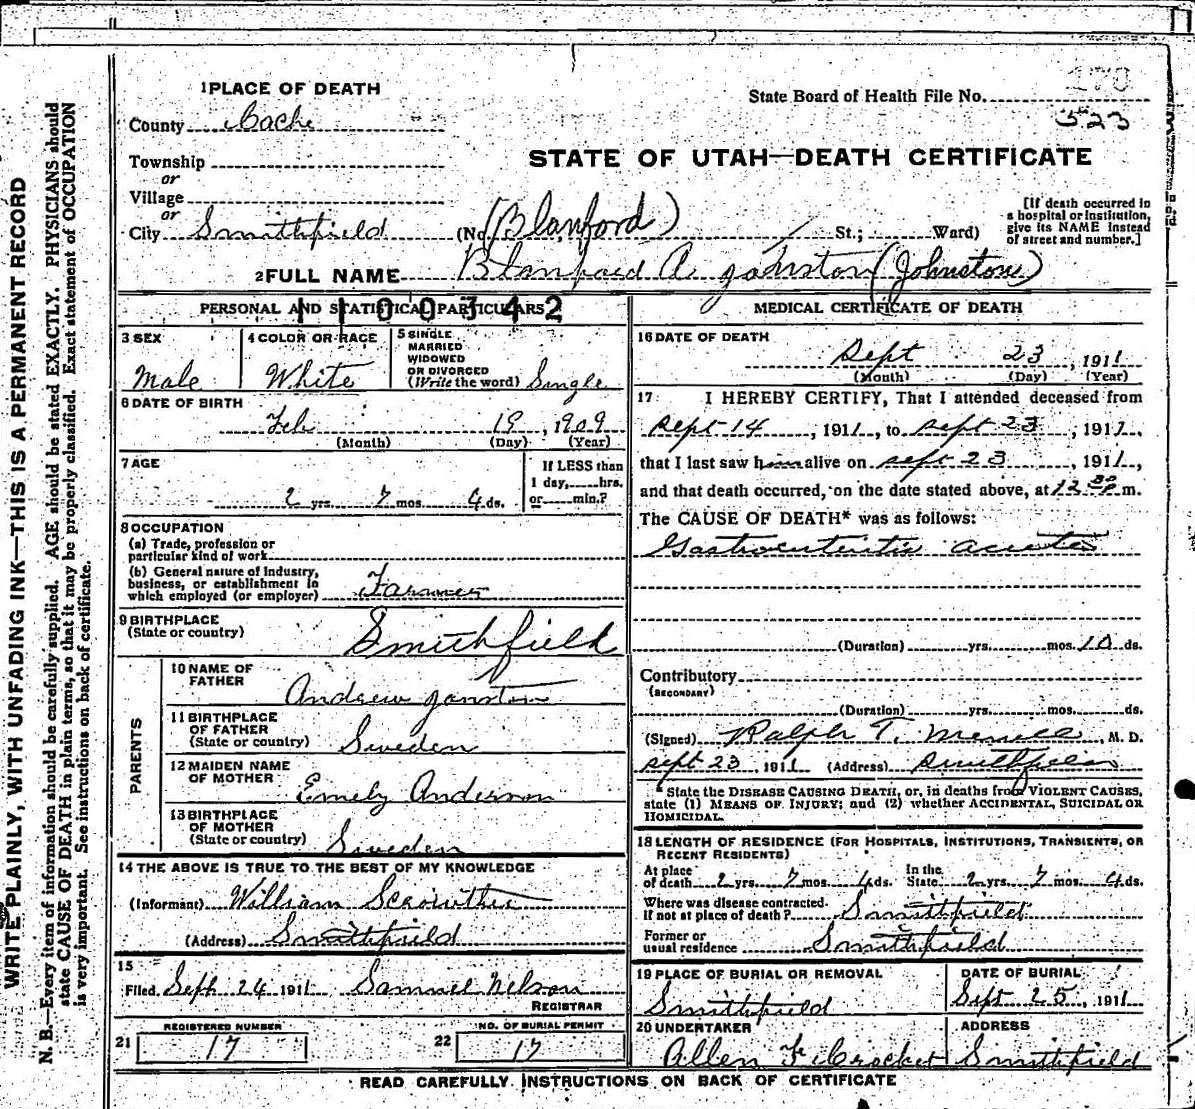 WRITE PLAINLY, WITH UNFADING INK—THIS IS A PERMANENT RECORD
N. B.—Every item of information should be carefully supplied. AGE should be stated EXACTLY. PHYSICIANS should
state CAUSE OF DEATH in plain terms, so that it may be properly classified. Exact statement of OCCUPATION
is very important. See instructions on back of certificate.
1 PLACE OF DEATH
County Cache
Township
or
Village
or
City Smithfield
State Board of Health File No. 170
523
STATE OF UTAH—DEATH CERTIFICATE
(No. (Blanford) St.; Ward)
[If death occurred in
a hospital or institution,
give its NAME instead
of street and number.]
2 FULL NAME Blanford A Johnston (Johnstone)
PERSONAL AND STATISTICAL PARTICULARS
1100342
3 SEX
Male
4 COLOR OR RACE
White
5 SINGLE
MARRIED
WIDOWED
OR DIVORCED
(Write the word) Single
6 DATE OF BIRTH
Feb 19, 1909
(Month) (Day) (Year)
7 AGE
2 yrs. 7 mos. 4 ds.
If LESS than
1 day, hrs.
or min.?
8 OCCUPATION
(a) Trade, profession or
particular kind of work
(b) General nature of industry,
business, or establishment in
which employed (or employer) Farmer
9 BIRTHPLACE
(State or country) Smithfield
PARENTS
10 NAME OF
FATHER
Andrew Janston
11 BIRTHPLACE
OF FATHER
(State or country) Sweden
12 MAIDEN NAME
OF MOTHER
Emely Anderson
13 BIRTHPLACE
OF MOTHER
(State or country) Sweden
14 THE ABOVE IS TRUE TO THE BEST OF MY KNOWLEDGE
(Informant) William
(Address) Smithfield
15
Filed Sept 24 1911 Samuel Nelson
REGISTRAR
REGISTERED NUMBER
21 17
NO. OF BURIAL PERMIT
22 17
MEDICAL CERTIFICATE OF DEATH
16 DATE OF DEATH
Sept 23, 1911
(Month) (Day) (Year)
17 I HEREBY CERTIFY, That I attended deceased from
Sept 14, 1911, to Sept 23, 1911,
that I last saw him alive on Sept 23, 1911,
and that death occurred, on the date stated above, at 12 30 P m.
The CAUSE OF DEATH* was as follows:
Gastroenteritis acute
(Duration) yrs. mos. 10 ds.
Contributory
(SECONDARY)
(Duration) yrs. mos. ds.
(Signed) Ralph T. Merrill, M. D.
Sept 23, 1911 (Address) Smithfield
* State the DISEASE CAUSING DEATH, or, in deaths from VIOLENT CAUSES,
state (1) MEANS OF INJURY; and (2) whether ACCIDENTAL, SUICIDAL OR
HOMICIDAL.
18 LENGTH OF RESIDENCE (FOR HOSPITALS, INSTITUTIONS, TRANSIENTS, OR
RECENT RESIDENTS)
At place
of death 2 yrs. 7 mos. 4 ds.
In the
State 2 yrs. 7 mos. 4 ds.
Where was disease contracted
if not at place of death? Smithfield
Former or
usual residence Smithfield
19 PLACE OF BURIAL OR REMOVAL
Smithfield
DATE OF BURIAL
Sept 25, 1911
20 UNDERTAKER
Allen F Crocket
ADDRESS
Smithfield
READ CAREFULLY INSTRUCTIONS ON BACK OF CERTIFICATE